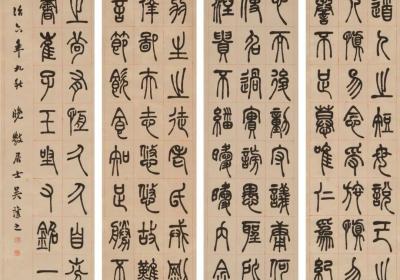 道人之短毋說己之
人慎勿念受施慎勿
譽不足慕唯仁為紀
而後動謗議庸何
使名過實守愚聖所
涅貴不緇曖曖內含
弱生之徒老氏誡剛
行鄙夫志悠悠故難
言節飲食知足勝
之尚有恆久久自芬
書崔子玉座右銘一
治六年九秋 晚 居士吳